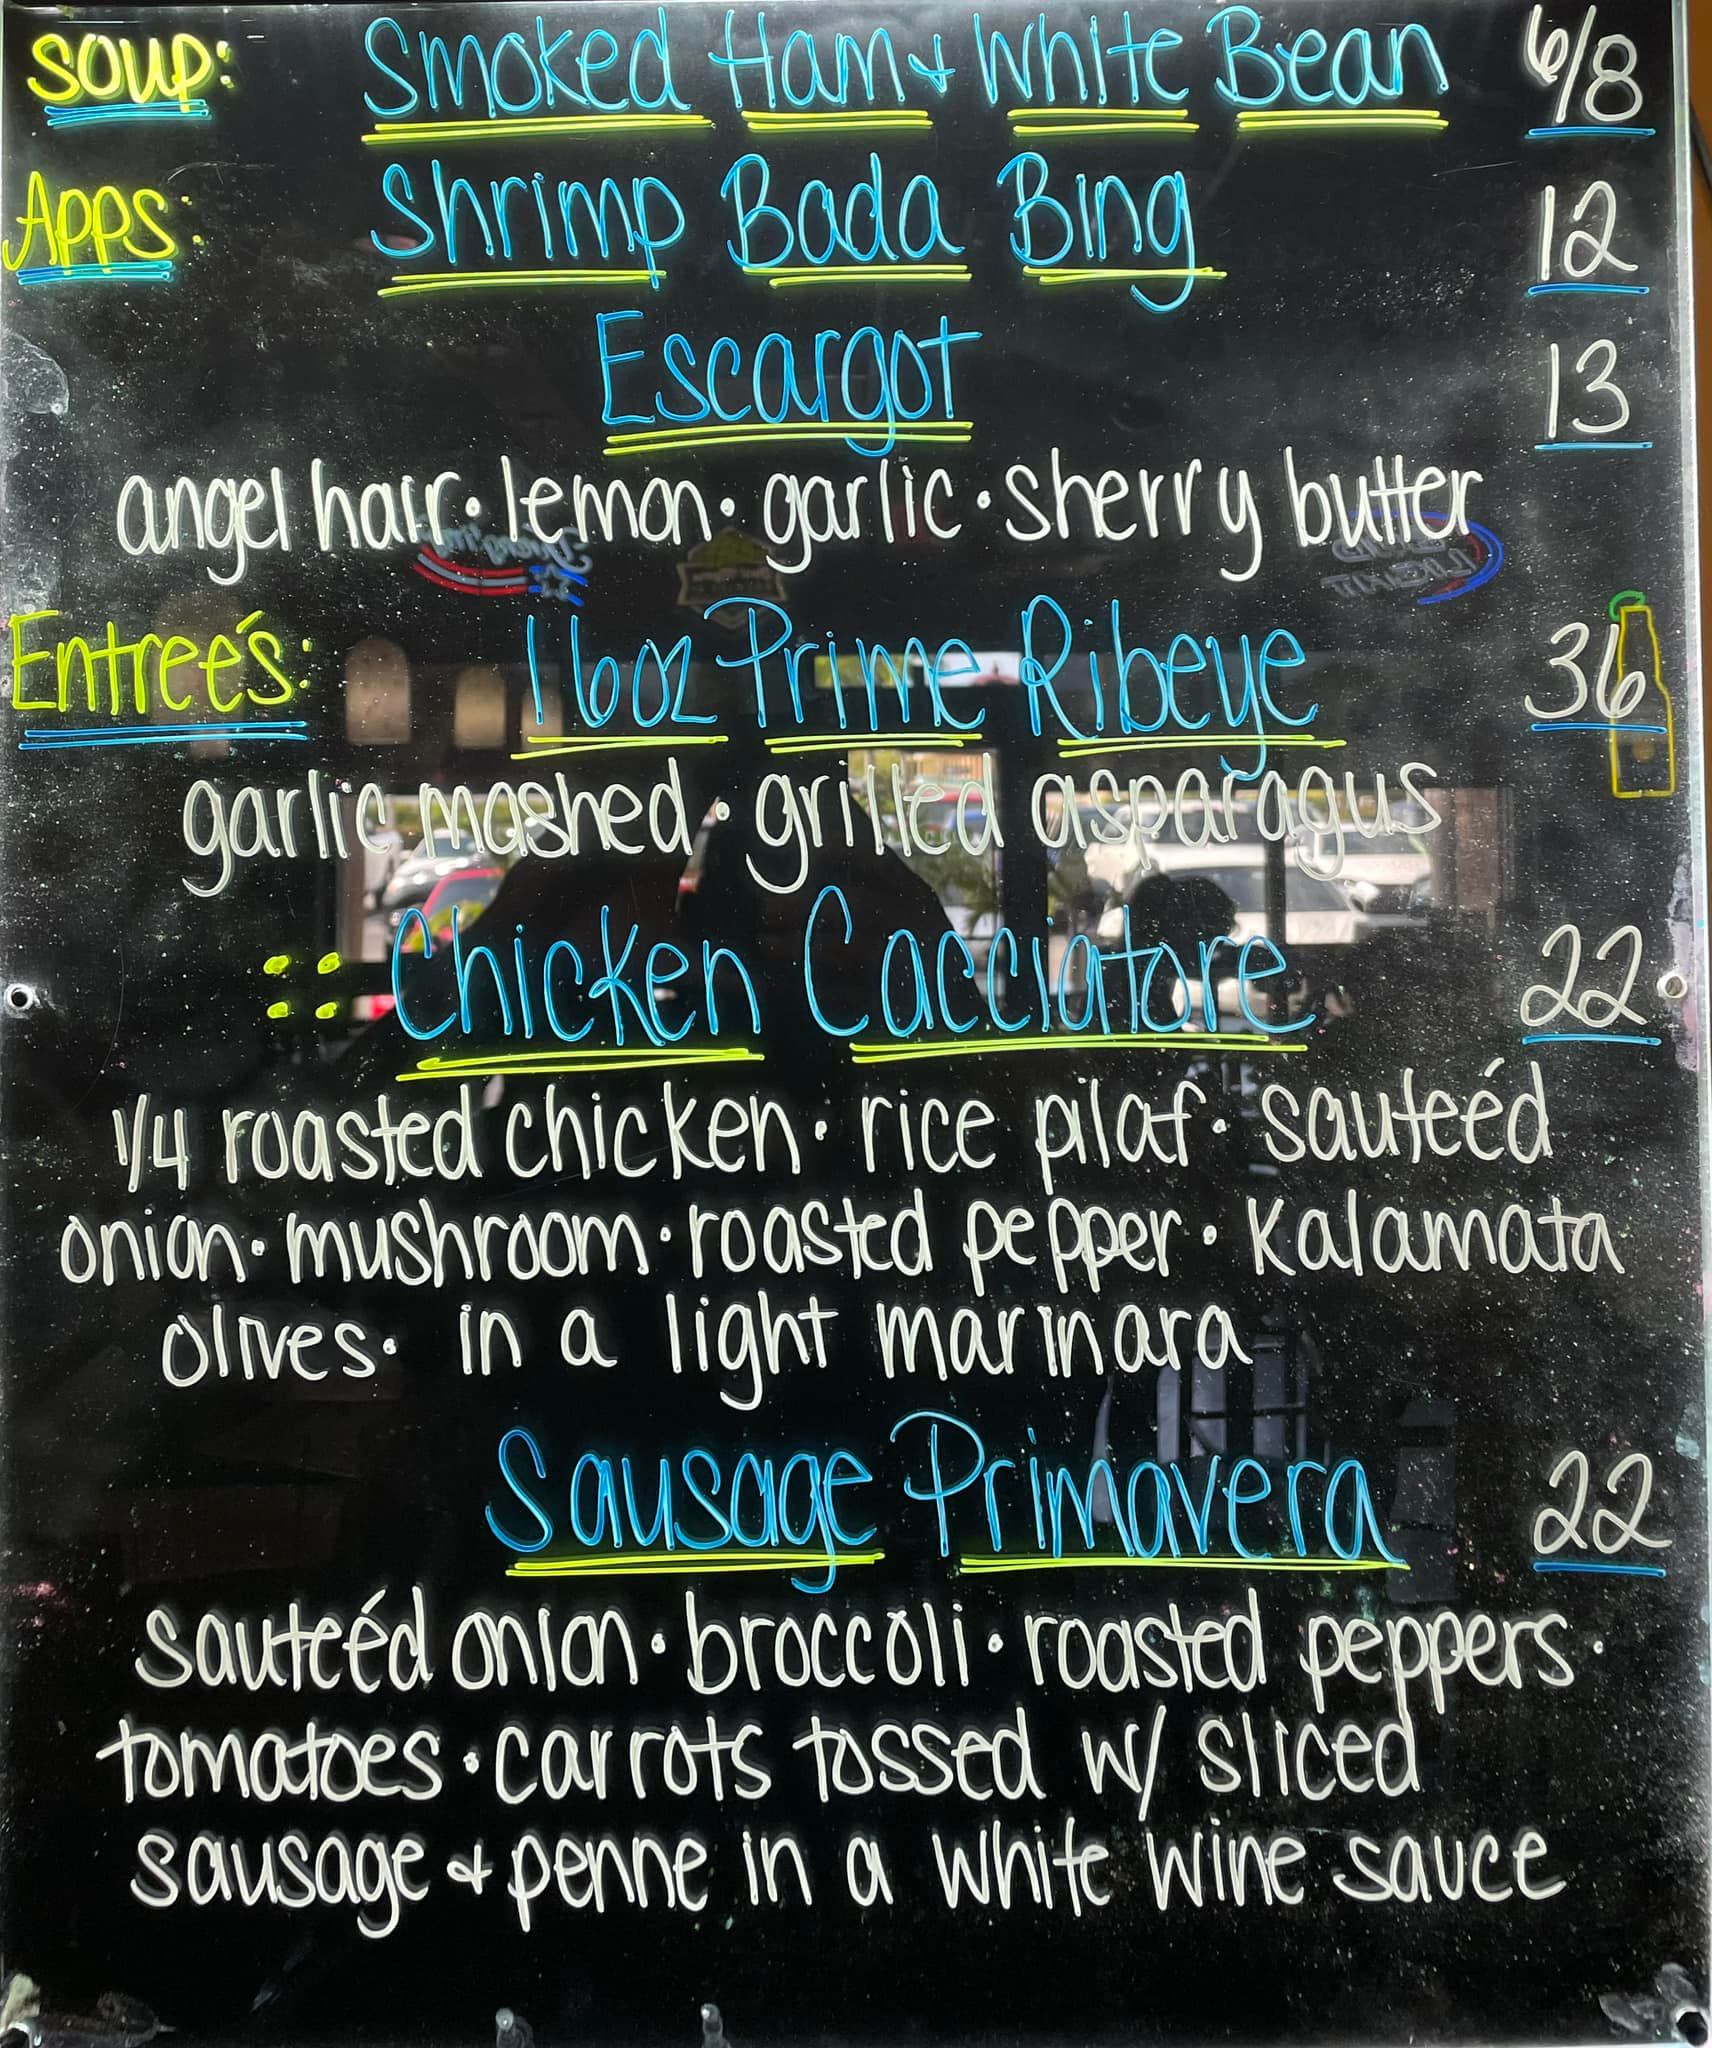 Soup: Smoked Ham + White Bean 6/8
Apps: Shrimp Bada Bing 12
Escargot 13
angel hair · lemon · garlic · sherry butter
Entreé's: 16oz Prime Ribeye 36
garlic mashed · grilled asparagus
:: Chicken Cacciatore 22
1/4 roasted chicken · rice pilaf · sauteéd
onion · mushroom · roasted pepper · Kalamata
olives · in a light marinara
Sausage Primavera 22
sauteéd onion · broccoli · roasted peppers ·
tomatoes · carrots tossed w/ sliced
sausage + penne in a white wine sauce